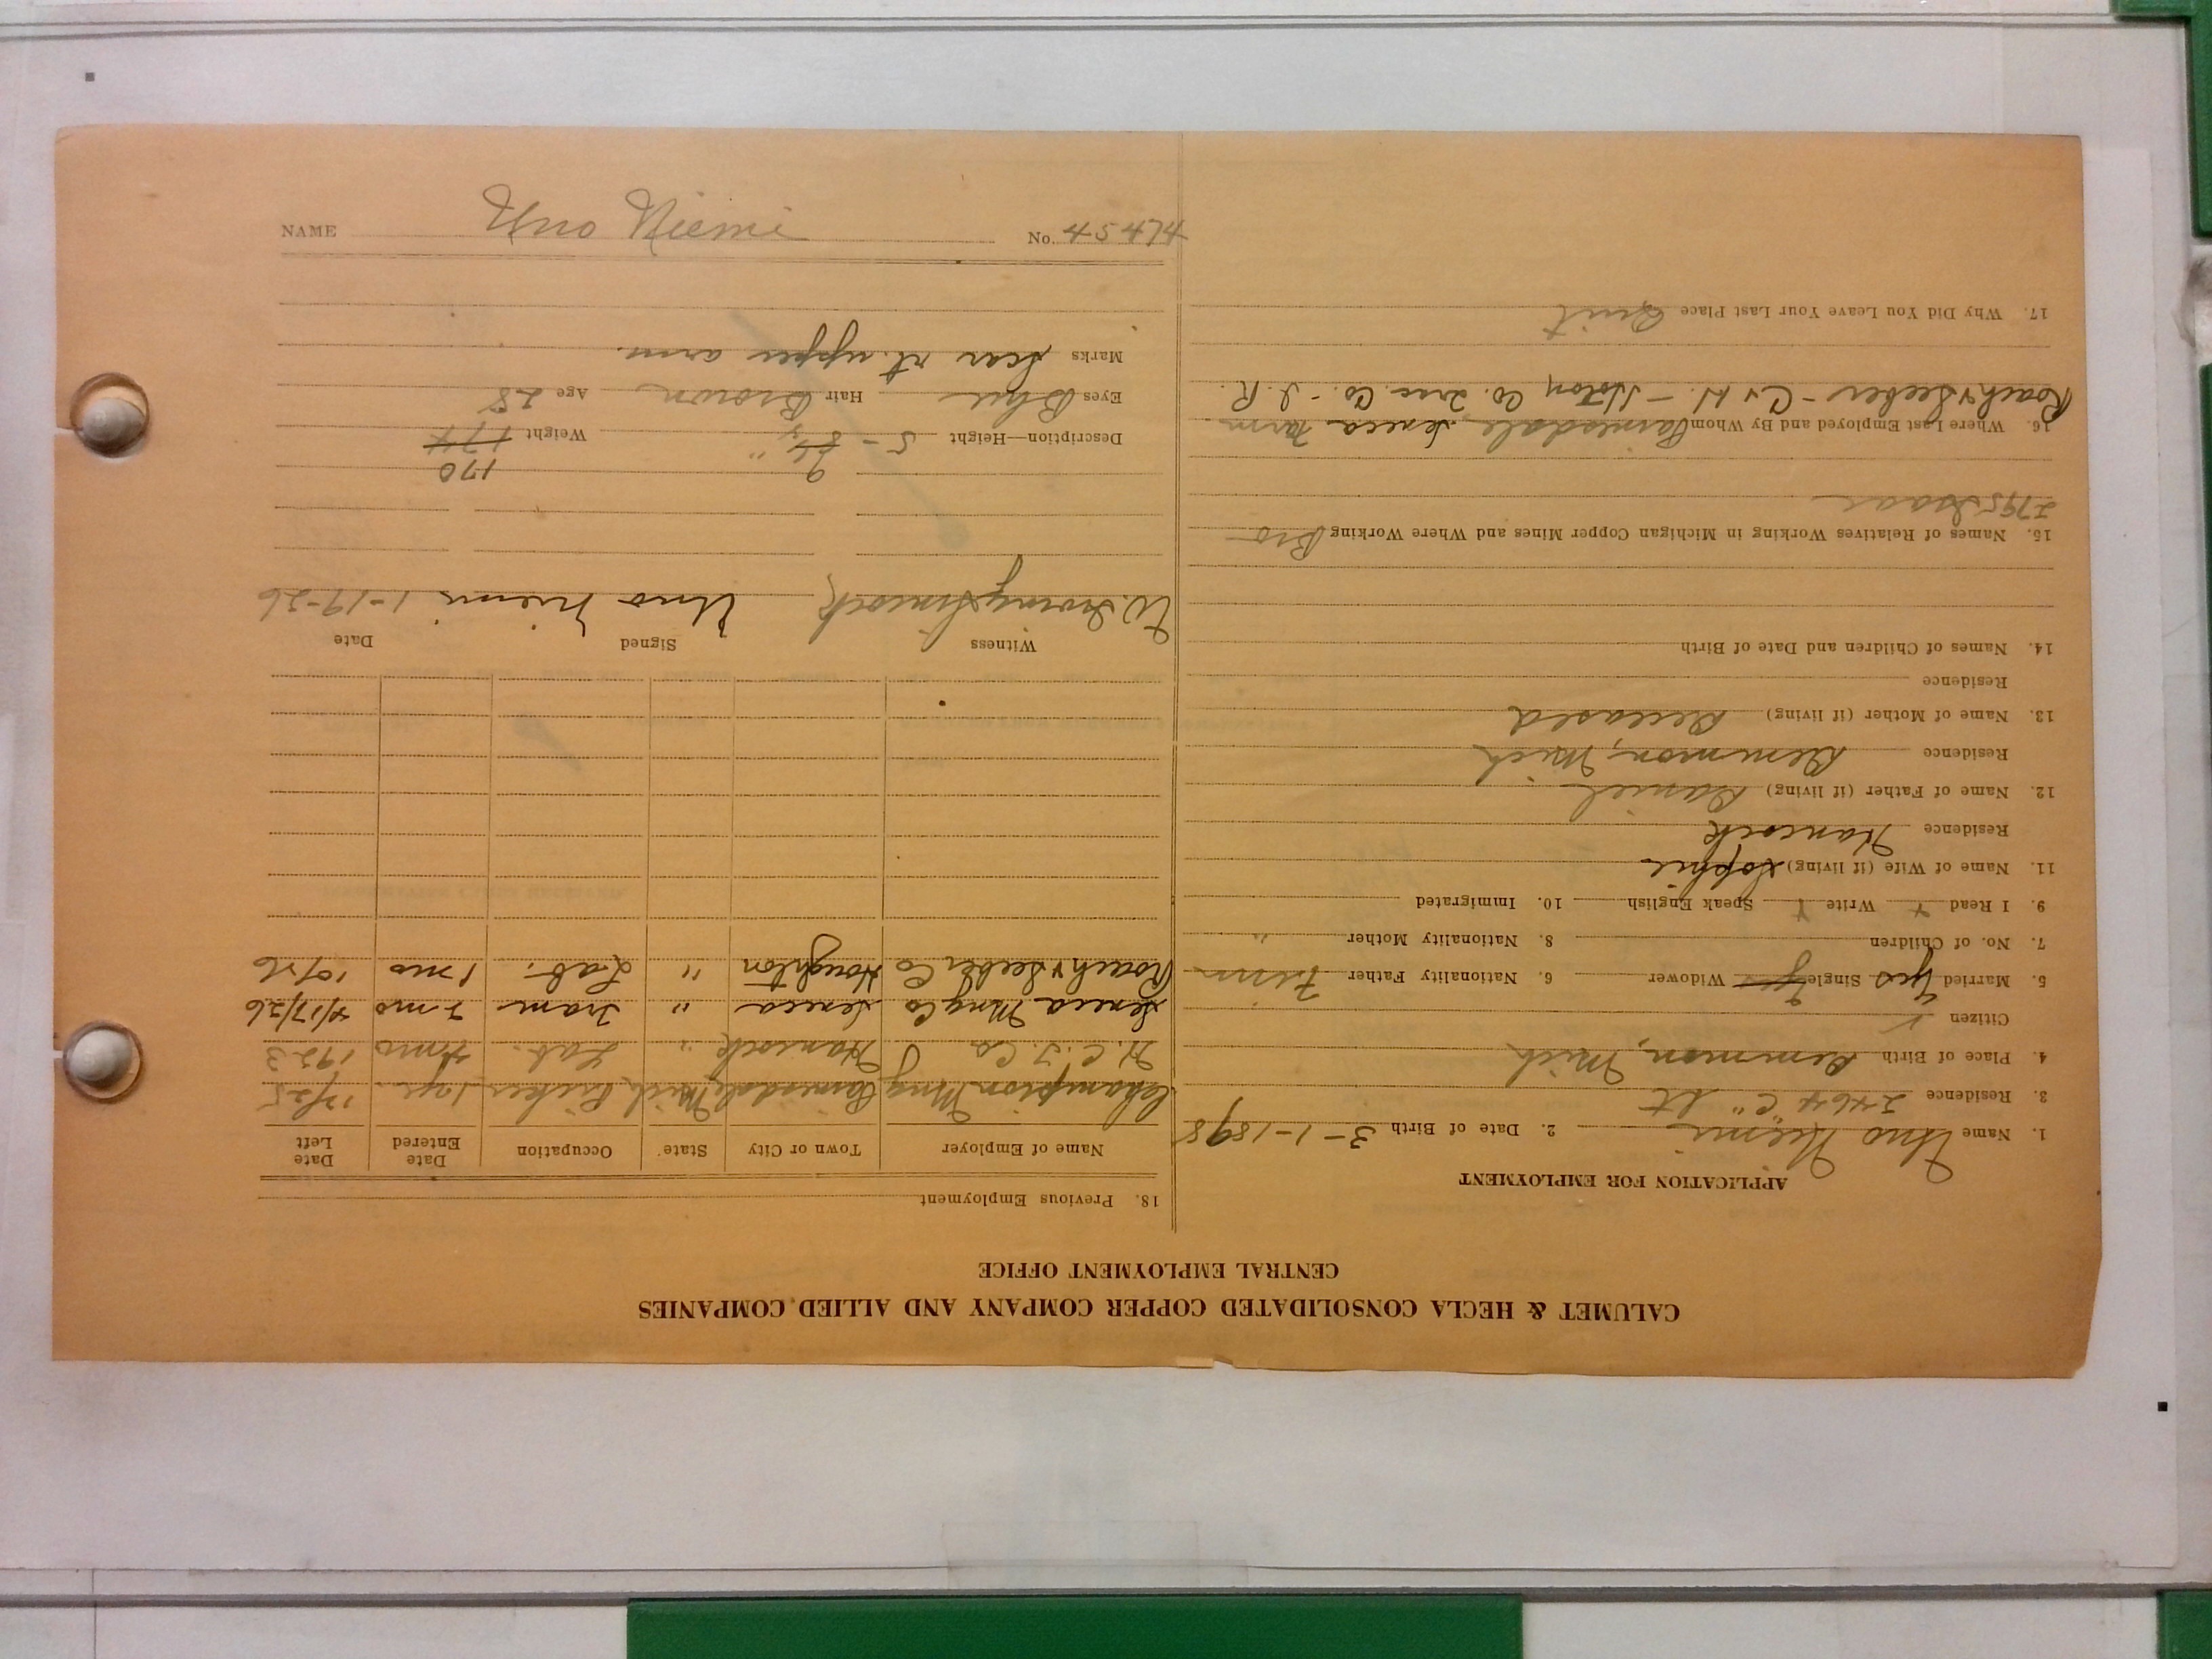 CALUMET & HECLA CONSOLIDATED COPPER COMPANY AND ALLIED COMPANIES
CENTRAL EMPLOYMENT OFFICE
APPLICATION FOR EMPLOYMENT
1. Name Uno Niemi 2. Date of Birth 3-1-1898
3. Residence 2464 "C" St
4. Place of Birth Demmon, Mich
Citizen ✓
5. Married Yes Single Yes Widower 6. Nationality Father Finn
7. No. of Children 8. Nationality Mother "
9. I Read Y Write Y Speak English 10. Immigrated
11. Name of Wife (if living) Sophie
Residence Hancock
12. Name of Father (if living) Daniel
Residence Demmon, Mich
13. Name of Mother (if living) Deceased
Residence
14. Names of Children and Date of Birth
15. Names of Relatives Working in Michigan Copper Mines and Where Working Bro
2795 Isaac
16. Where Last Employed and By Whom Painesdale, Seneca
Roach & Seeber - C & H. - Hoton Co. Trac Co. - I. R.
17. Why Did You Leave Your Last Place Quit
18. Previous Employment
Name of Employer Town or City State Occupation Date Entered Date Left
Champion Mng Painesdale Mich Picker 1 yr. 12/25
H. C. T. Co. Hancock " Lab. 4 mo 1923
Seneca Mng Co Seneca " Tram 2 mo 4/17/26
Roach & Seeber Co Houghton " Lab. 1 mo 10/26
Witness Signed Date
W. Irving Uno Niemi 1-19-26
9 170
Description—Height 5-8¼" Weight 174
Eyes Blue Hair Brown Age 28
Marks Scar rt. upper arm.
NAME Uno Niemi No. 45474